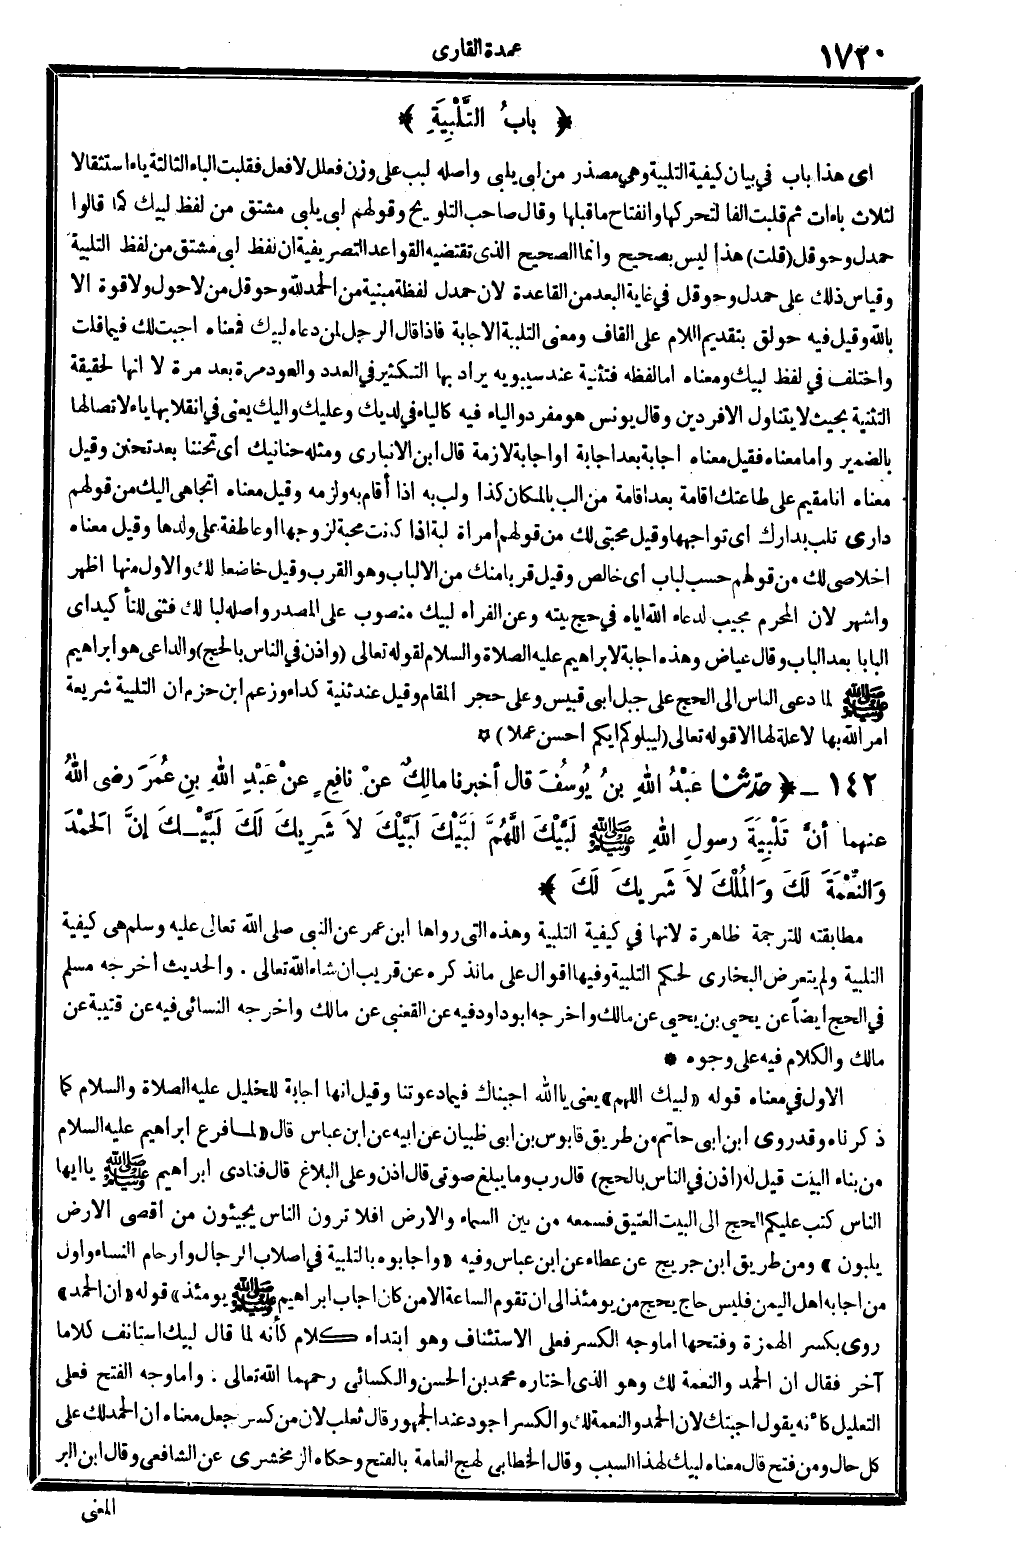 ١٧٢٠
عمدة القارى
﴿ بابُ التَّلْبِيَةِ ﴾
اى هذا باب في بيان كيفية التلبية وهي مصدر من لبى يلبى وأصله لبب على وزن فعلل لا فعل فقلبت الباء الثالثة ياء استثقالا
لثلاث باءات ثم قلبت الفا لتحركها وانفتاح ما قبلها وقال صاحب التلويح وقولهم لبى يلبى مشتق من لفظ لبيك كما قالوا
حمدل وحوقل (قلت) هذا ليس بصحيح وانما الصحيح الذى تقتضيه القواعد التصريفية ان لفظ لبى مشتق من لفظ التلبية
وقياس ذلك على حمدل وحوقل في غاية البعد من القاعدة لان حمدل لفظة مبنية من الحمد لله وحوقل من لا حول ولا قوة الا
بالله وقيل فيه حولق بتقديم اللام على القاف ومعنى التلبية الاجابة فاذا قال الرجل لمن دعاه لبيك فمعناه اجبت لك فيما قلت
واختلف في لفظ لبيك ومعناه اما لفظه فتثنية عند سيبويه يراد بها التكثير في العدد والعود مرة بعد مرة لا انها لحقيقة
التثنية بحيث لا يتناول الا فردين وقال يونس هو مفرد والياء فيه كالياء في لديك وعليك واليك يعنى في انقلابها ياء لاتصالها
بالضمير وأما معناه فقيل معناه اجابة بعد اجابة او اجابة لازمة قال ابن الانبارى ومثله حنانيك أى تحننا بعد تحنن وقيل
معناه انا مقيم على طاعتك اقامة بعد اقامة من الب بالمكان كذا ولب به اذا أقام به ولزمه وقيل معناه اتجاهى اليك من قولهم
دارى تلب بدارك اى تواجهها وقيل محبتى لك من قولهم امرأة لبة اذا كانت محبة لزوجها او عاطفة على ولدها وقيل معناه
اخلاصى لك من قولهم حسب لباب اى خالص وقيل قربا منك من الالباب وهو القرب وقيل خاضعا لك والاول منها اظهر
واشهر لان المحرم مجيب لدعاء الله اياه في حج بيته وعن الفراء لبيك منصوب على المصدر واصله لبا لك فثنى للتأكيد اى
البابا بعد الباب وقال عياض وهذه اجابة لابراهيم عليه الصلاة والسلام لقوله تعالى (واذن في الناس بالحج) والداعى هو ابراهيم
ﷺ لما دعى الناس الى الحج على جبل ابى قبيس وعلى حجر المقام وقيل عند ثنية كداء وزعم ابن حزم ان التلبية شريعة
امر الله بها لا علة لها الا قوله تعالى (ليبلوكم ايكم احسن عملا) ¤
١٤٢ ـ ﴿ حدّثنا عَبْدُ اللهِ بنُ يُوسُفَ قال أخبرنا مالِكٌ عنْ نافِعٍ عنْ عَبْدِ اللهِ بنِ عُمَرَ رضى اللهُ
عنهما أنَّ تَلْبِيَةَ رسولِ اللهِ ﷺ لَبَّيْكَ اللَّهُمَّ لَبَّيْكَ لَبَّيْكَ لاَ شَرِيكَ لَكَ لَبَّيْـكَ إنَّ الحَمْدَ
وَالنِّعْمَةَ لَكَ وَالمُلْكَ لاَ شَرِيكَ لَكَ ﴾
مطابقته للترجمة ظاهرة لانها في كيفية التلبية وهذه التى رواها ابن عمر عن النبى صلى الله تعالى عليه وسلم هى كيفية
التلبية ولم يتعرض البخارى لحكم التلبية وفيها اقوال على ما نذكره عن قريب ان شاء الله تعالى . والحديث أخرجه مسلم
في الحج ايضاً عن يحيى بن يحيى عن مالك واخرجه ابو داود فيه عن القعنبى عن مالك واخرجه النسائى فيه عن قتيبة عن
مالك والكلام فيه على وجوه *
الاول في معناه قوله «لبيك اللهم» يعنى يا الله اجبناك فيما دعوتنا وقيل انها اجابة للخليل عليه الصلاة والسلام كما
ذكرناه وقد روى ابن ابى حاتم من طريق قابوس بن ابى ظبيان عن ابيه عن ابن عباس قال «لما فرغ ابراهيم عليه السلام
من بناء البيت قيل له (اذن في الناس بالحج) قال رب وما يبلغ صوتى قال اذن وعلى البلاغ قال فنادى ابراهيم ﷺ يا ايها
الناس كتب عليكم الحج الى البيت العتيق فسمعه من بين السماء والارض افلا ترون الناس يجيئون من أقصى الارض
يلبون» ومن طريق ابن جريج عن عطاء عن ابن عباس وفيه «واجابوه بالتلبية في اصلاب الرجال وأرحام النساء واول
من اجابه اهل اليمن فليس حاج يحج من يومئذ الى ان تقوم الساعة الا من كان اجاب ابراهيم ﷺ يومئذ» قوله «ان الحمد»
روى بكسر الهمزة وفتحها اما وجه الكسر فعلى الاستئناف وهو ابتداء كلام كأنه لما قال لبيك استانف كلاما
آخر فقال ان الحمد والنعمة لك وهو الذى اختاره محمد بن الحسن والكسائى رحمهما الله تعالى . وأما وجه الفتح فعلى
التعليل كأنه يقول اجبتك لان الحمد والنعمة لك والكسر اجود عند الجمهور قال ثعلب لان من كسر جعل معناه ان الحمد لك على
كل حال ومن فتح قال معناه لبيك لهذا السبب وقال الخطابى لهج العامة بالفتح وحكاه الزمخشرى عن الشافعى وقال ابن البر
المعنى